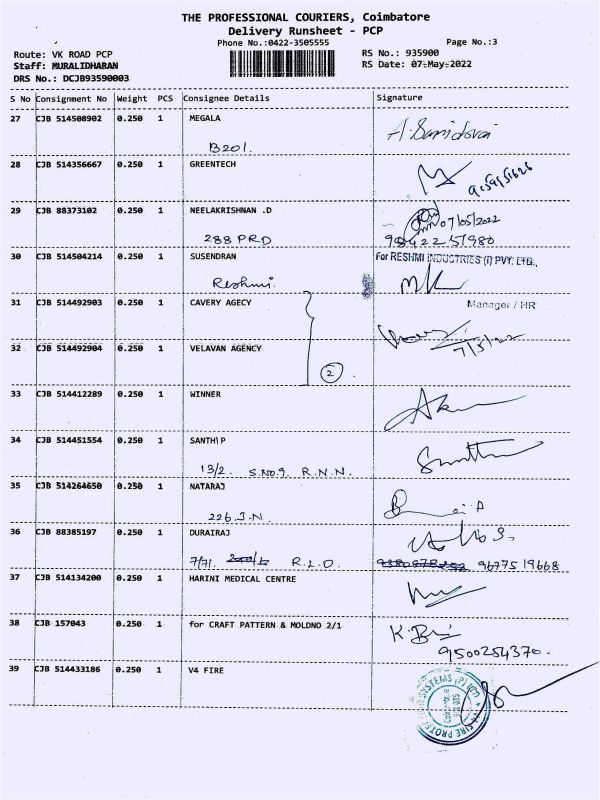 THE PROFESSIONAL COURIERS, Coimbatore
Delivery Runsheet - PCP
Phone No.:0422-3505555
Page No.:3
Route: VK ROAD PCP
RS No.: 935900
Staff: MURALIDHARAN
RS Date: 07-May-2022
DRS No.: DCJB93590003
S No Consignment No Weight PCS Consignee Details Signature
27 CJB 514508902 0.250 1 MEGALA
B201.
28 CJB 514356667 0.250 1 GREENTECH
29 CJB 88373102 0.250 1 NEELAKRISHNAN .D
07/05/2022
288 PRD
9842251980
30 CJB 514504214 0.250 1 SUSENDRAN
For RESHMI INDUSTRIES (I) PVT. LTD.,
Reshmi.
Manager / HR
31 CJB 514492903 0.250 1 CAVERY AGECY
7/5/22
32 CJB 514492904 0.250 1 VELAVAN AGENCY
2
33 CJB 514412289 0.250 1 WINNER
34 CJB 514451554 0.250 1 SANTHI P
13/2. S.NO.9. R.N.N.
35 CJB 514264650 0.250 1 NATARAJ
226.J.N.
36 CJB 88385197 0.250 1 DURAIRAJ
7/71. R.L.D. 9677519668
37 CJB 514134200 0.250 1 HARINI MEDICAL CENTRE
38 CJB 157043 0.250 1 for CRAFT PATTERN & MOLDNO 2/1
9500254370.
39 CJB 514433186 0.250 1 V4 FIRE